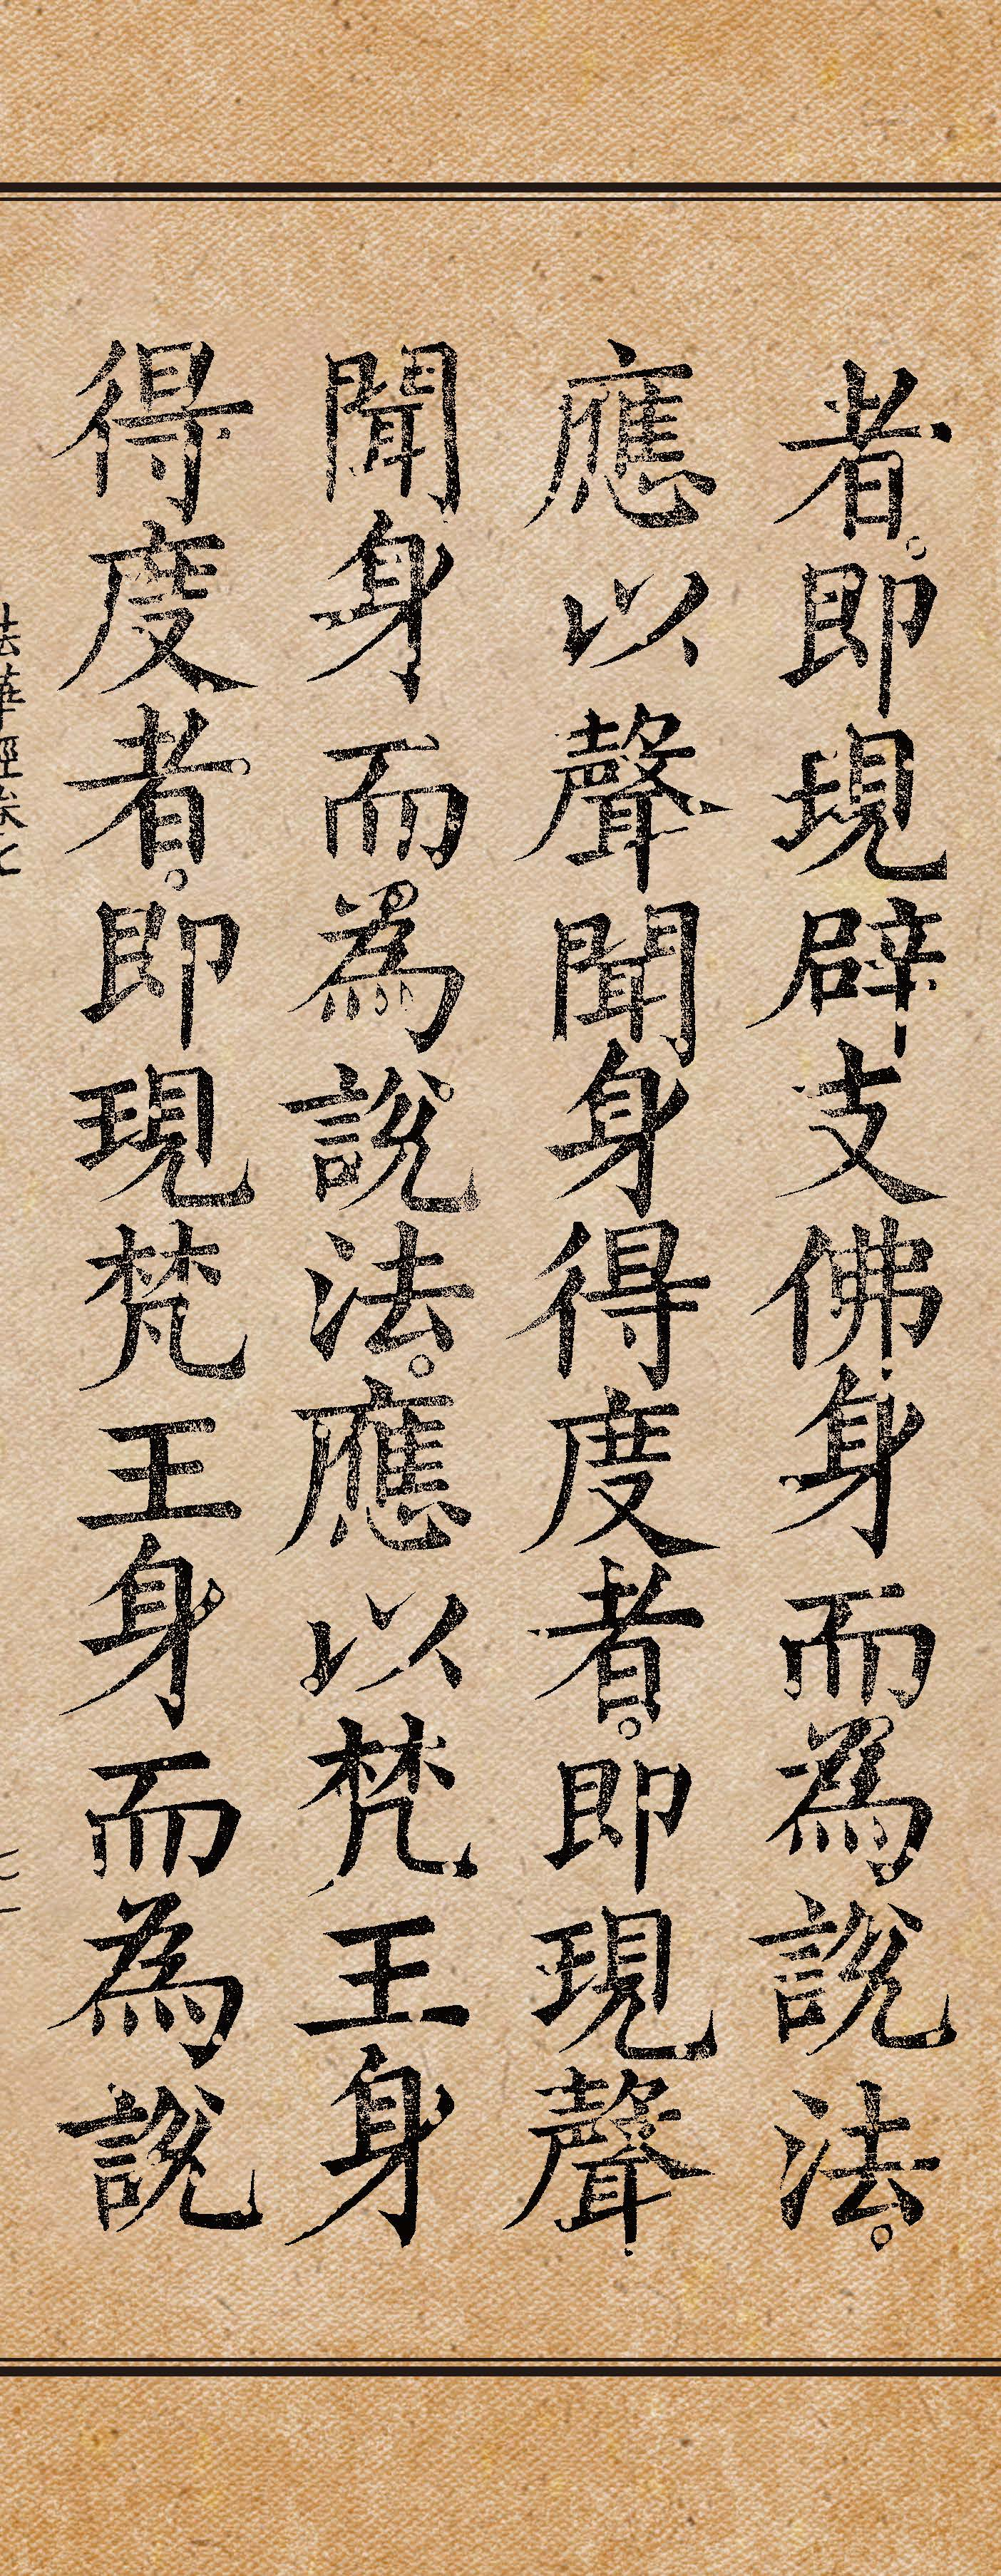 者。即現辟支佛身而為說法。
應以聲聞身得度者。即現聲
聞身而為說法。應以梵王身
得度者。即現梵王身而為說
法華經卷七